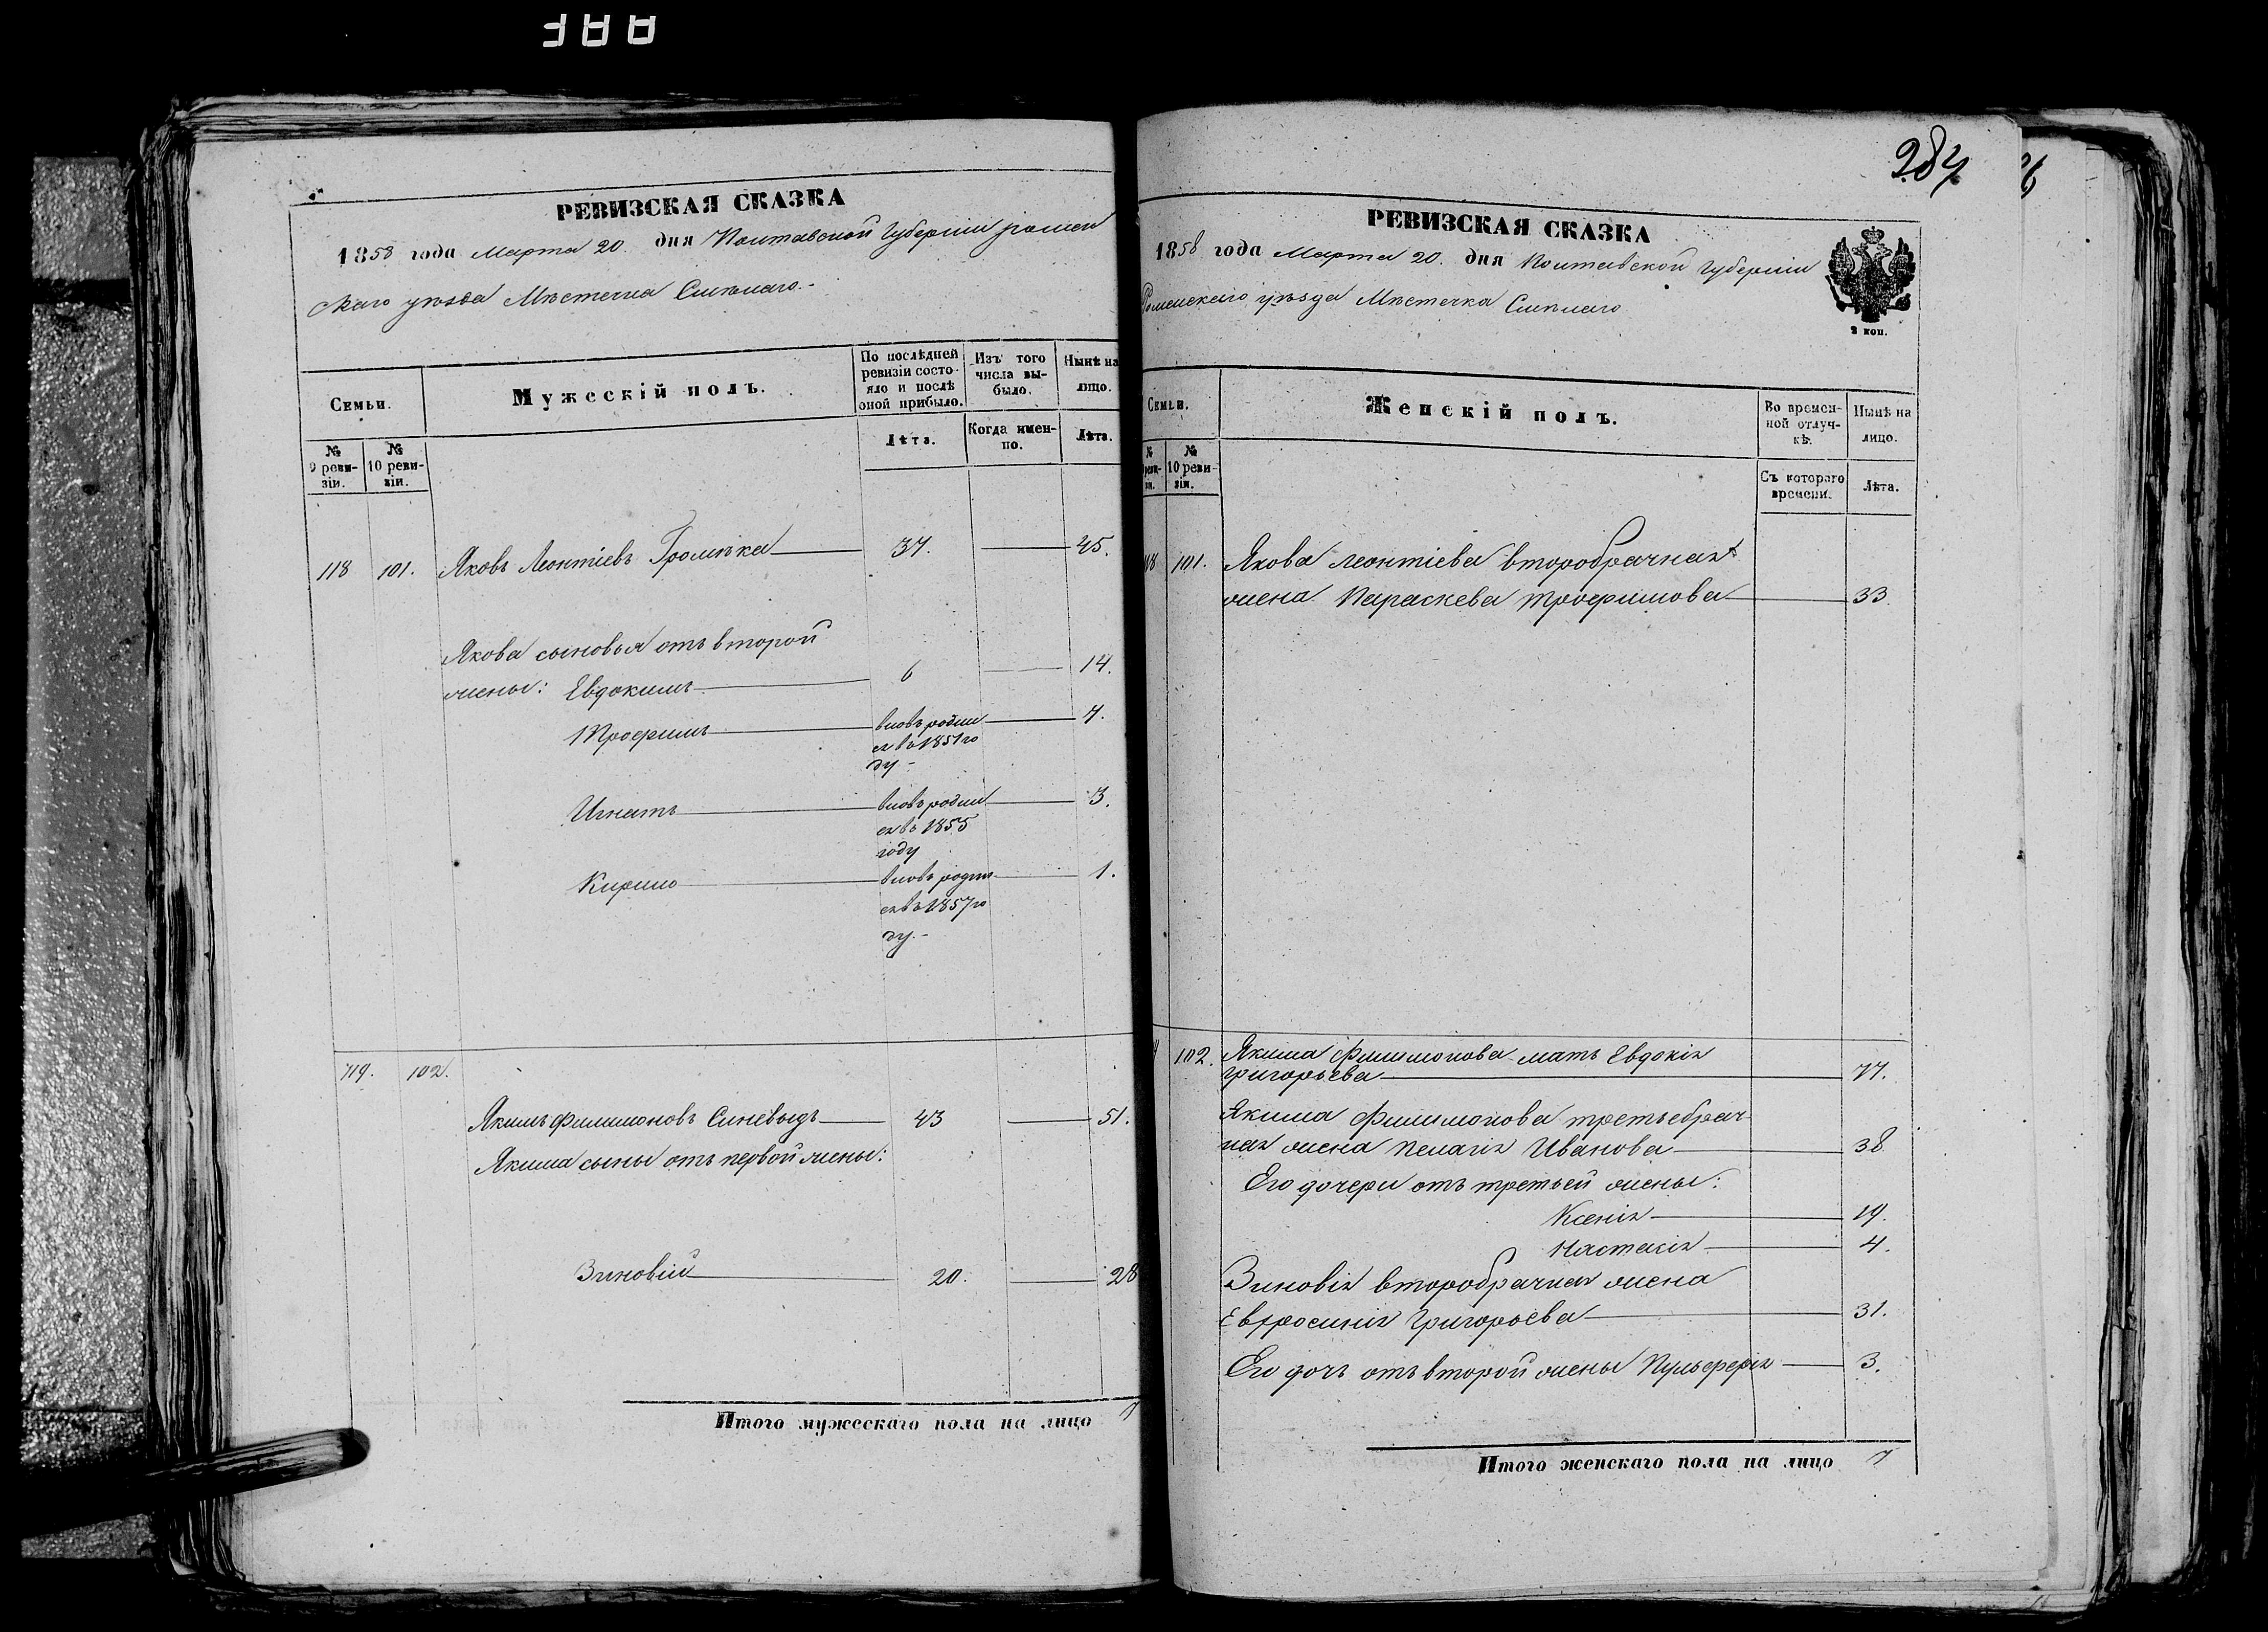 388
РЕВИЗСКАЯ СКАЗКА
1858 года Марта 20. дня Полтавской Губерніи ромен
скаго уѣзда Мѣстечка Смѣлаго.-
Семьи.
Мужескій полъ.
По послѣдней ревизіи состояло и послѣ оной прибыло.
Изъ того числа выбыло.
Нынѣ на лицо.
№ 9 ревизіи.
№ 10 ревизіи.
Лѣта.
Когда именно.
Лѣта.
118 101. Яковъ Леонтіевъ Громѣка 37. 45.
Якова сыновья отъ второй
жены: Евдокимъ 6 14.
Трофимъ вновь родил 7.
ся въ 1851 го
ду -
Игнатъ вновь родил 3.
ся въ 1855
году
Кирило вновь родил 1.
ся въ 1857 го
ду.-
119. 102.
Якимъ Филимоновъ Синевыдъ 43 51.
Якима сыны отъ первой жены:
Зиновій 20. 28
Итого мужескаго пола на лицо 7
287
РЕВИЗСКАЯ СКАЗКА
1858 года Марта 20. дня Полтавской Губерніи
Роменскаго уѣзда Мѣстечка Смѣлаго
2 коп.
Семьи.
Женскій полъ.
Во временной отлучкѣ.
Нынѣ на лицо.
№ реви-
зіи.
№ 10 ревизіи.
Съ котораго времени.
Лѣта.
118 101. Якова Леонтіева второбрачная
жена Параскева Трофимова 33
102. Якима Филимонова мать Евдокія
Григорьева 77.
Якима Филимонова третьебрач
ная жена Пелагія Иванова 38
Его дочери отъ третьей жены:
Ксенія 19.
Настасія 4.
Зиновія второбрачная жена
Евфросинія Григорьева 31.
Его дочь отъ второй жены Пульферія 3.
Итого женскаго пола на лицо 7